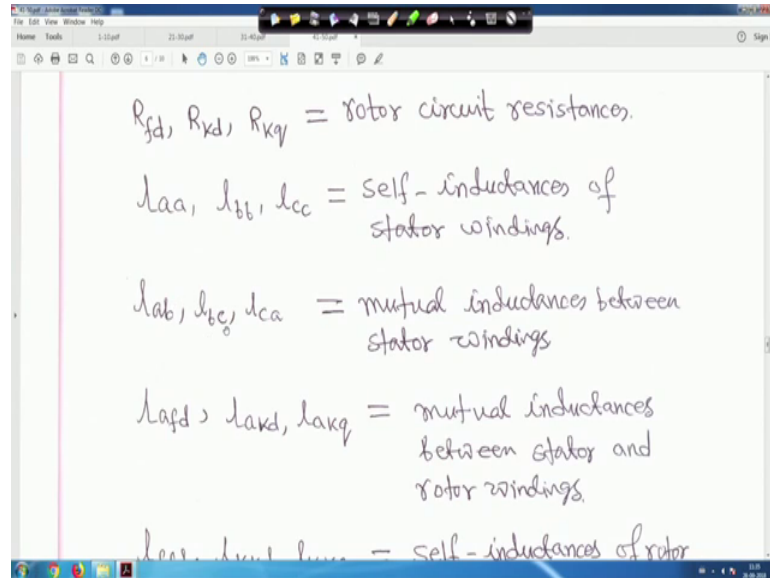 File Edit View Window Help
Home Tools 1-10.pdf 21-30.pdf 31-40.pdf 41-50.pdf Sign
R_fd, R_kd, R_kq = rotor circuit resistances.
l_aa, l_bb, l_cc = self-inductances of
stator windings.
l_ab, l_bc, l_ca = mutual inductances between
stator windings
l_afd, l_akd, l_akq = mutual inductances
between stator and
rotor windings.
= self-inductances of rotor